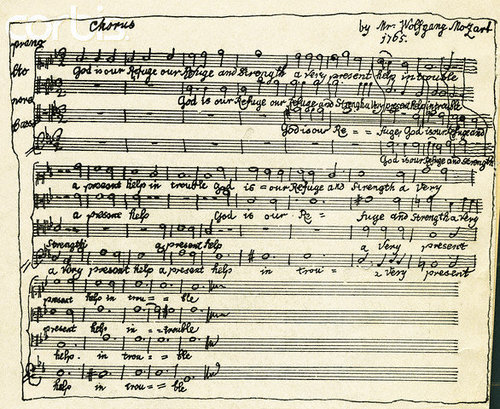 corbis
Chorus
by Mr. Wolfgang Mozart
1765.
God is our Refuge our Refuge and Strength a very present help in trouble
God is our Refuge our Refuge and Strength a Very present help in trouble
God is our Re = = fuge, God is our Refuge and
God is our Refuge and Strength
a present help in trouble God is = our Refuge and Strength a Very
a present help God is our Re = fuge and Strength a Very
Strength a present help a Very present
a Very present help a present help in trou = = a Very present
present help in trou = = ble
present help in = = trouble
help. in trou = = ble
help in trou = = ble